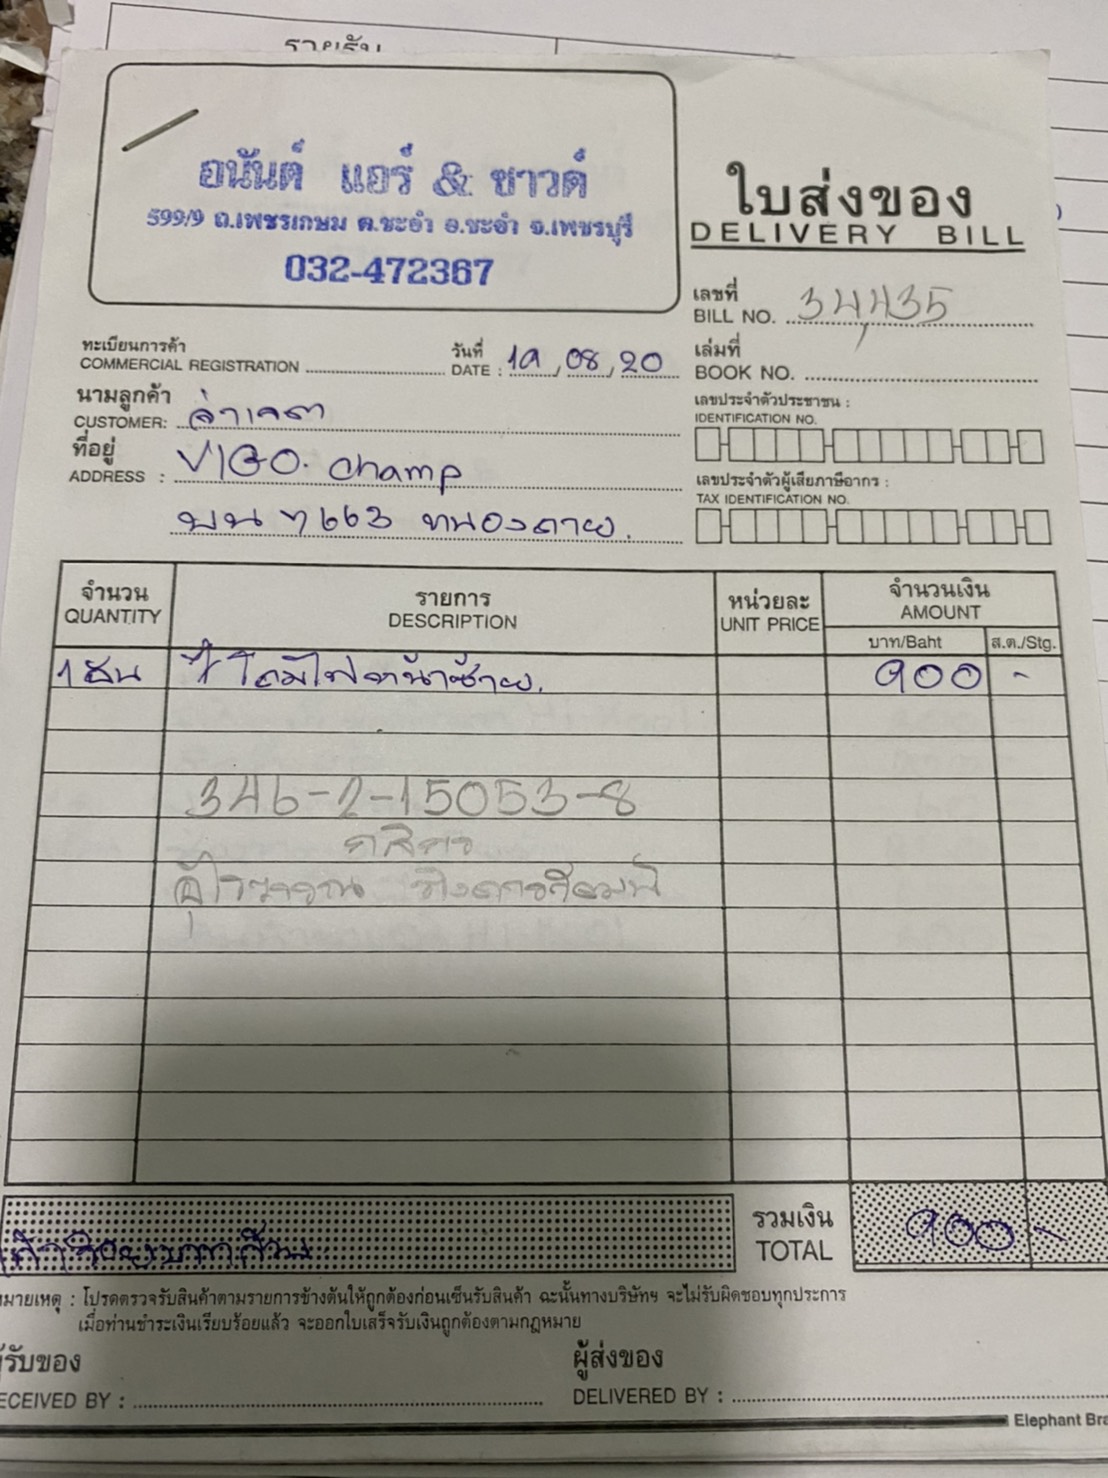 รายรับ
อนันต์ แอร์ & ซาวด์
599/9 ถ.เพชรเกษม ต.ชะอำ อ.ชะอำ จ.เพชรบุรี
032-472367
ใบส่งของ
DELIVERY BILL
เลขที่
BILL NO. 34,435
ทะเบียนการค้า
COMMERCIAL REGISTRATION
วันที่
DATE : 19,08,20
เล่มที่
BOOK NO.
นามลูกค้า
CUSTOMER: จ่าเจตา
เลขประจำตัวประชาชน :
IDENTIFICATION NO.
ที่อยู่
ADDRESS : VIGO. champ
เลขประจำตัวผู้เสียภาษีอากร :
TAX IDENTIFICATION NO.
7663
จำนวน รายการ หน่วยละ จำนวนเงิน
QUANTITY DESCRIPTION UNIT PRICE AMOUNT
บาท/Baht ส.ต./Stg.
1 อัน โคมไฟหน้าซ้าย. 900 -
346-2-15053-8
กสิกร
รวมเงิน
TOTAL 900 -
เก้าร้อยบาทถ้วน
หมายเหตุ : โปรดตรวจรับสินค้าตามรายการข้างต้นให้ถูกต้องก่อนเซ็นรับสินค้า ฉะนั้นทางบริษัทฯ จะไม่รับผิดชอบทุกประการ
เมื่อท่านชำระเงินเรียบร้อยแล้ว จะออกใบเสร็จรับเงินถูกต้องตามกฎหมาย
ผู้รับของ
RECEIVED BY :
ผู้ส่งของ
DELIVERED BY :
Elephant Bra